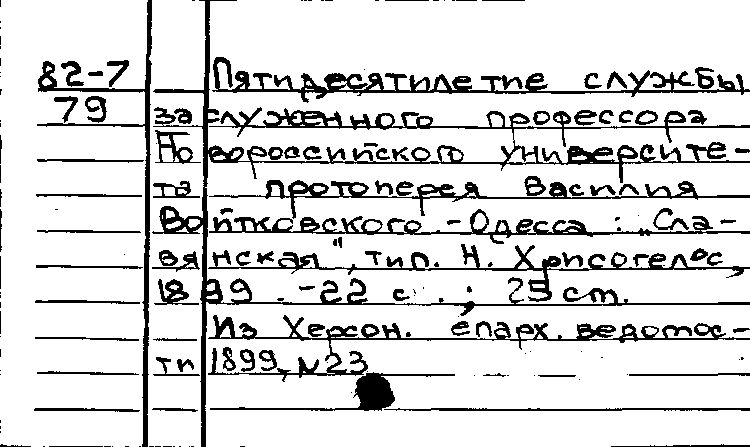 82-7 Пятидесятилетие службы
79 заслуженного профессора
Новороссийского университе-
та протоперея Василия
Войтковского. - Одесса : "Сла-
вянская", тип. Н. Хрисогелос,
1899. - 22 с. ; 25 cm.
Из Херсон. епарх. ведомос-
ти 1899, N23